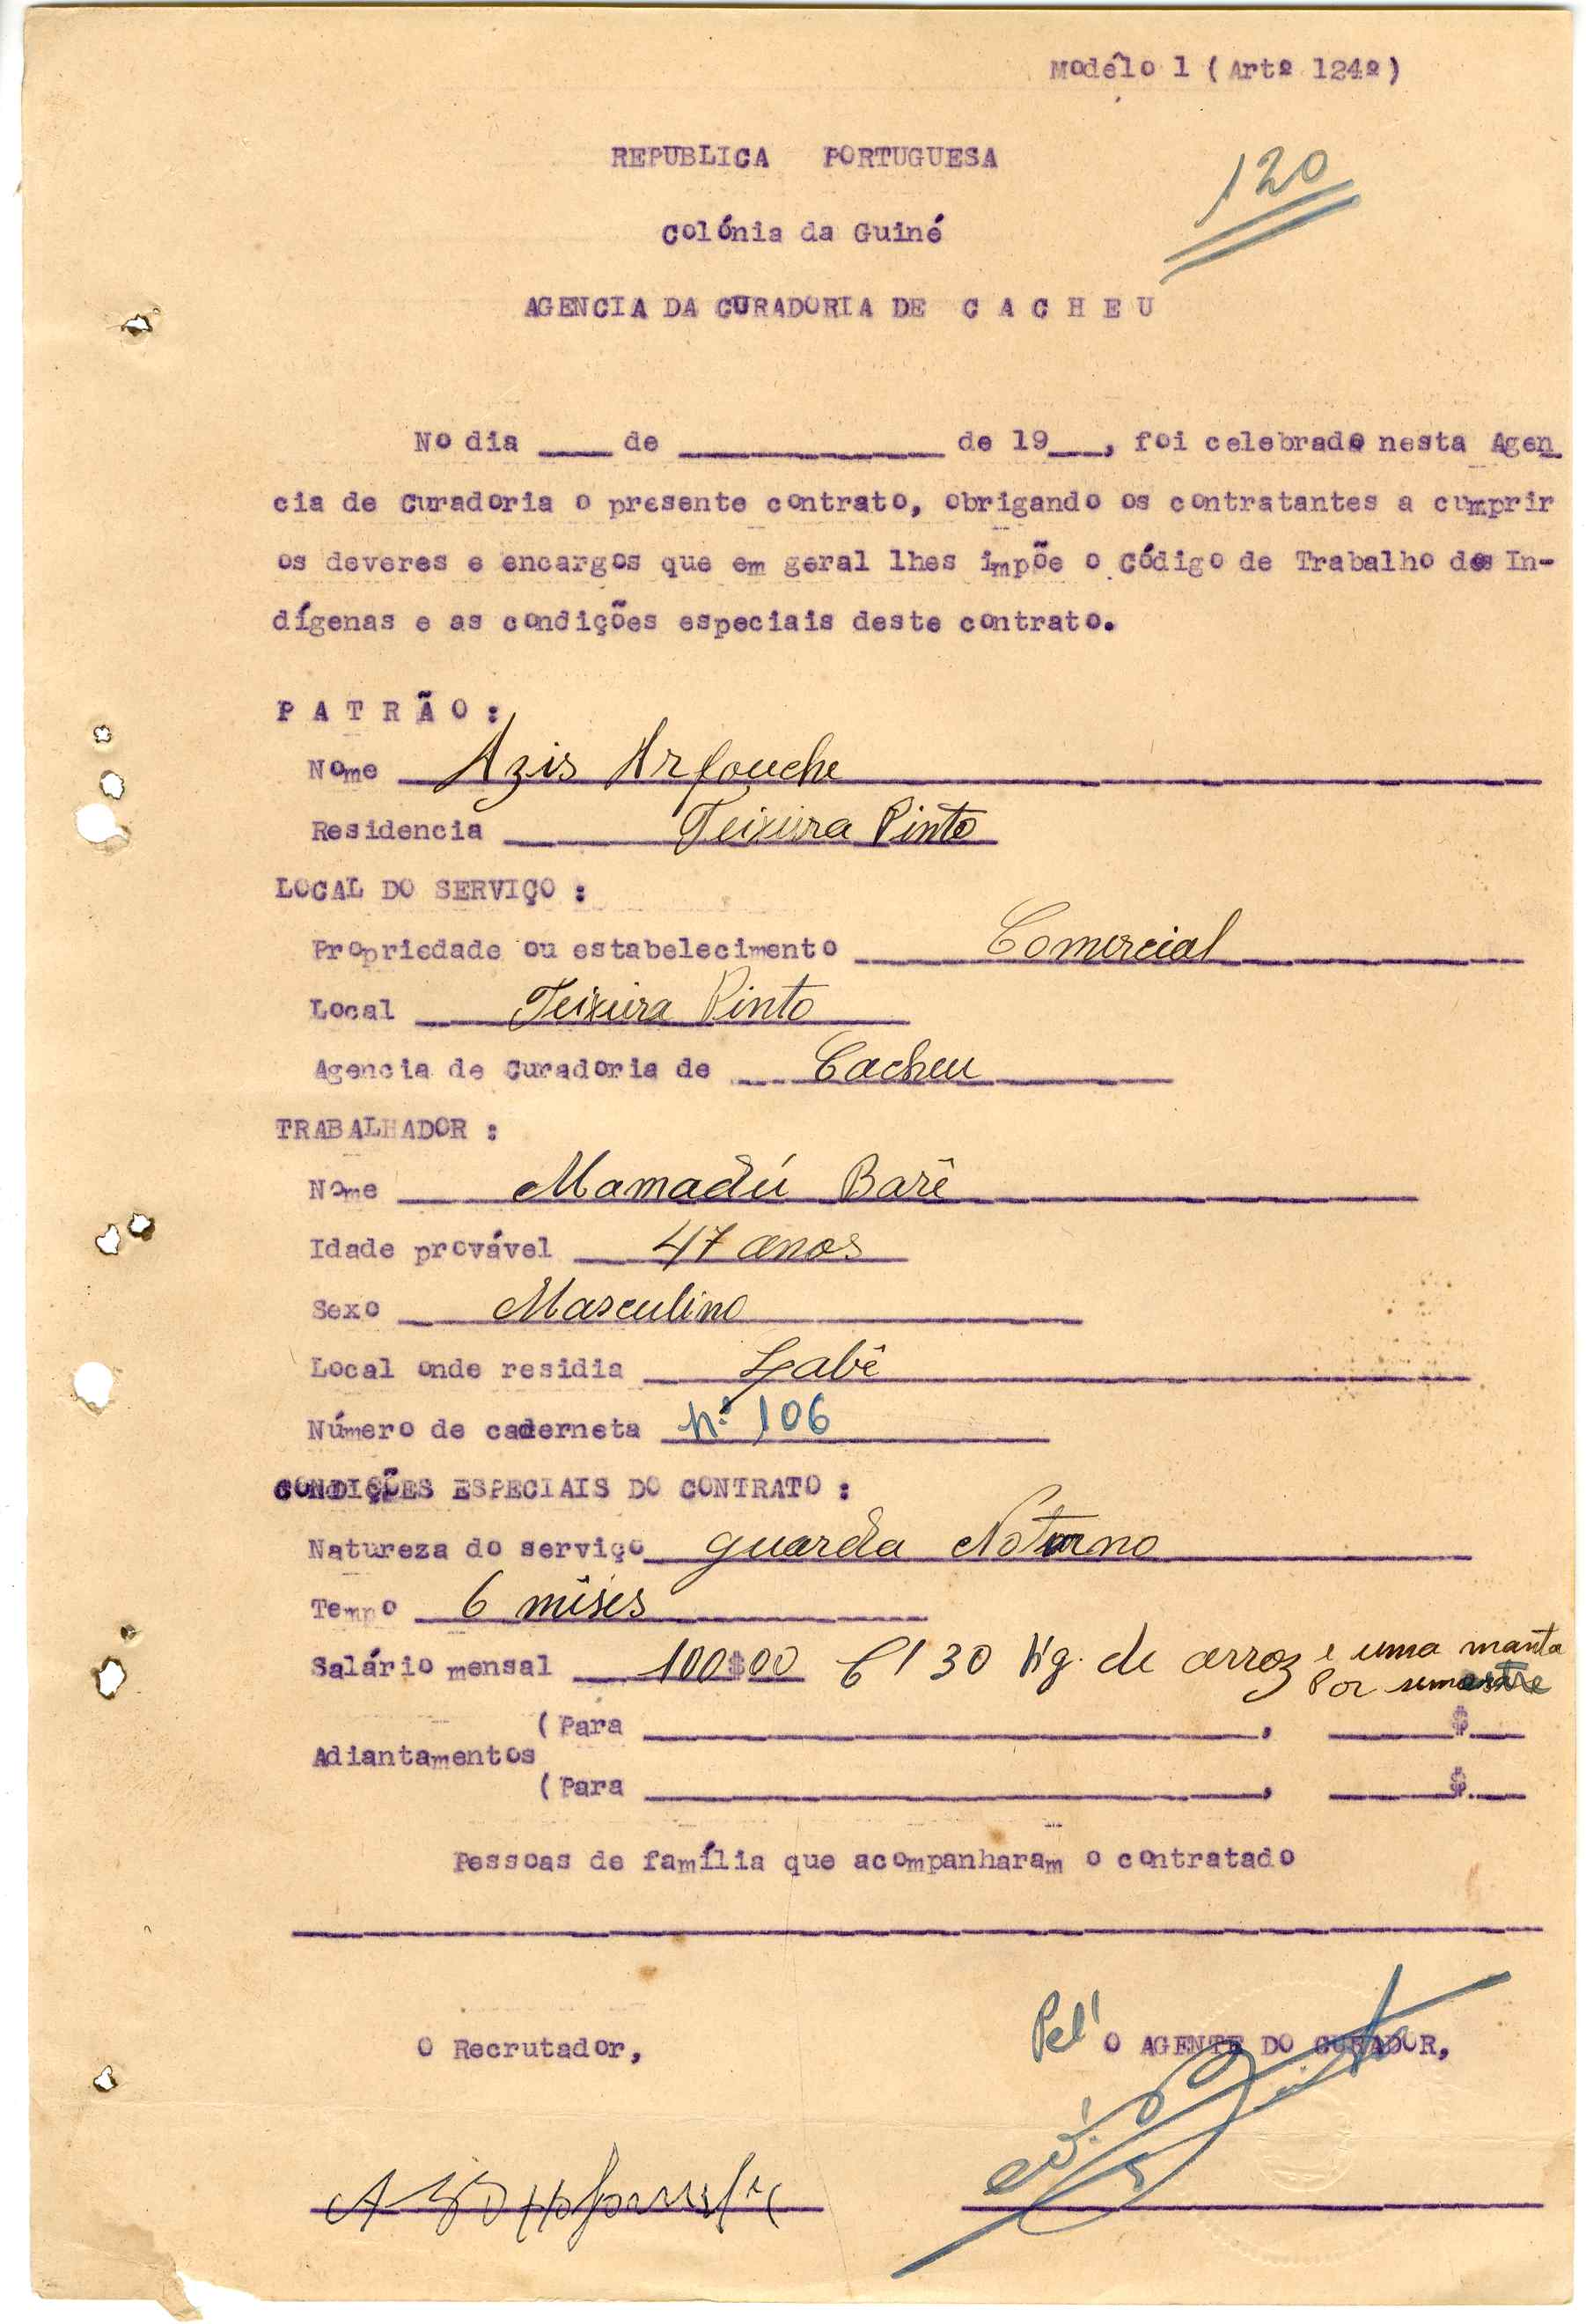 Modêlo 1 ( Artº 124º)
120
REPUBLICA PORTUGUESA
Colónia da Guiné
AGENCIA DA CURADORIA DE C A C H E U
No dia ____ de ______________ de 19___, foi celebrado nesta Agen
cia de Curadoria o presente contrato, obrigando os contratantes a cumprir
os deveres e encargos que em geral lhes impõe o Código de Trabalho dos In-
dígenas e as condições especiais deste contrato.
P A T R Ã O :
Nome Azis Arfouche
Residencia Teixeira Pinto
LOCAL DO SERVIÇO :
Propriedade ou estabelecimento Comercial
Local Teixeira Pinto
Agencia de Curadoria de Cacheu
TRABALHADOR :
Nome Mamadú Barê
Idade provável 47 anos
Sexo Masculino
Local onde residia Gabê
Número de caderneta nº 106
CONDIÇÕES ESPECIAIS DO CONTRATO :
Natureza do serviço guarda Noturno
Tempo 6 mêses
Salário mensal 100$00 C/ 30 Kg. de arroz e uma manta
Por semestre
(Para ______________, ______$___
Adiantamentos
(Para ______________, ______$___
Pessoas de família que acompanharam o contratado
Pel'
O Recrutador, O AGENTE DO CURADOR,